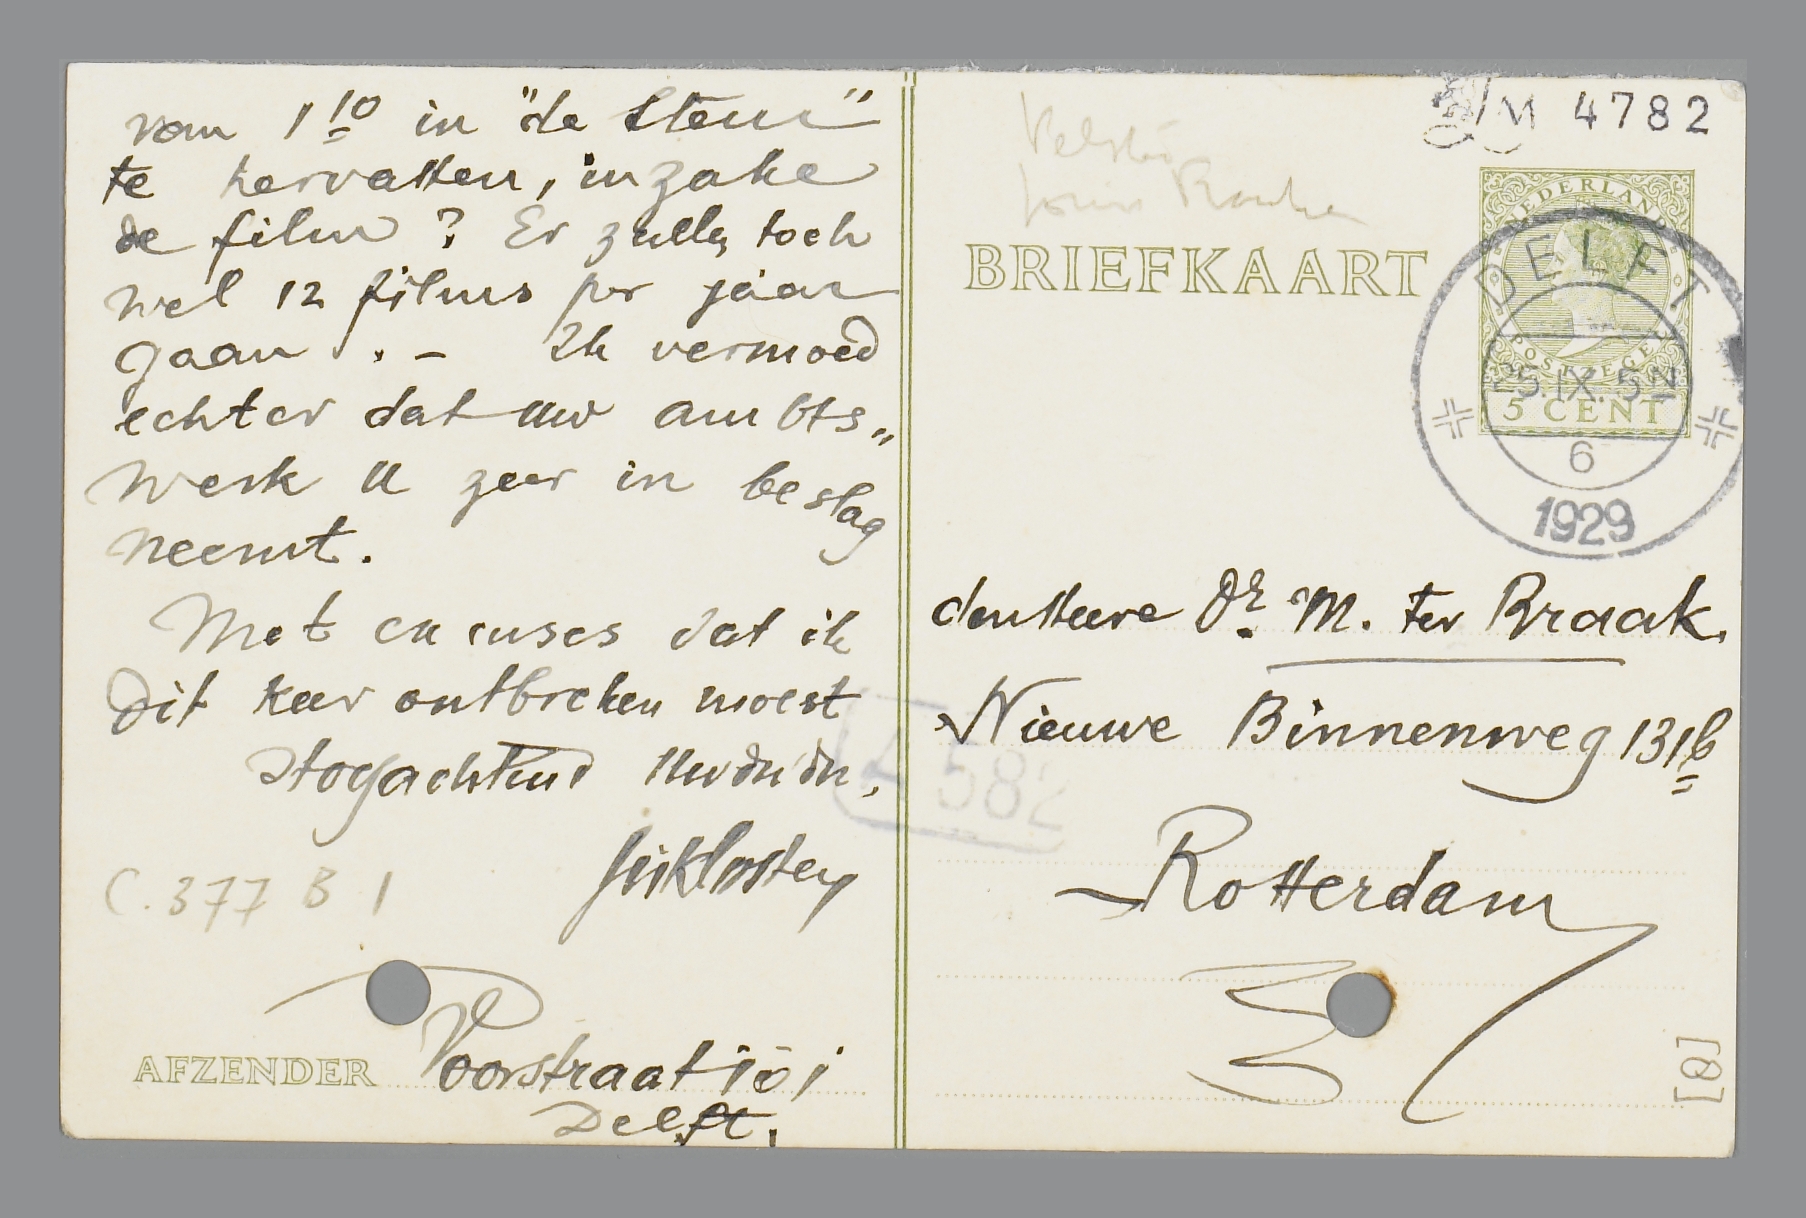 van 1 10 in "de Stem"
te hervatten, inzake
de film? Er zullen toch
wel 12 films per jaar
gaan . – Ik vermoed
echter dat uw ambts„
werk U zeer in beslag
neemt.
Met excuses dat ik
dit keer ontbreken moest
Hoogachtend Uw dn dn,
C. 377 B 1
AFZENDER Voorstraat 101
Delft.
M 4782
BRIEFKAART
NEDERLAND
POSTZEGEL
5 CENT
DELFT
25.IX. 5N
6
1929
den Heere Dr. M. ter Braak.
Nieuwe Binnenweg 131b
Rotterdam
4582
[Q]